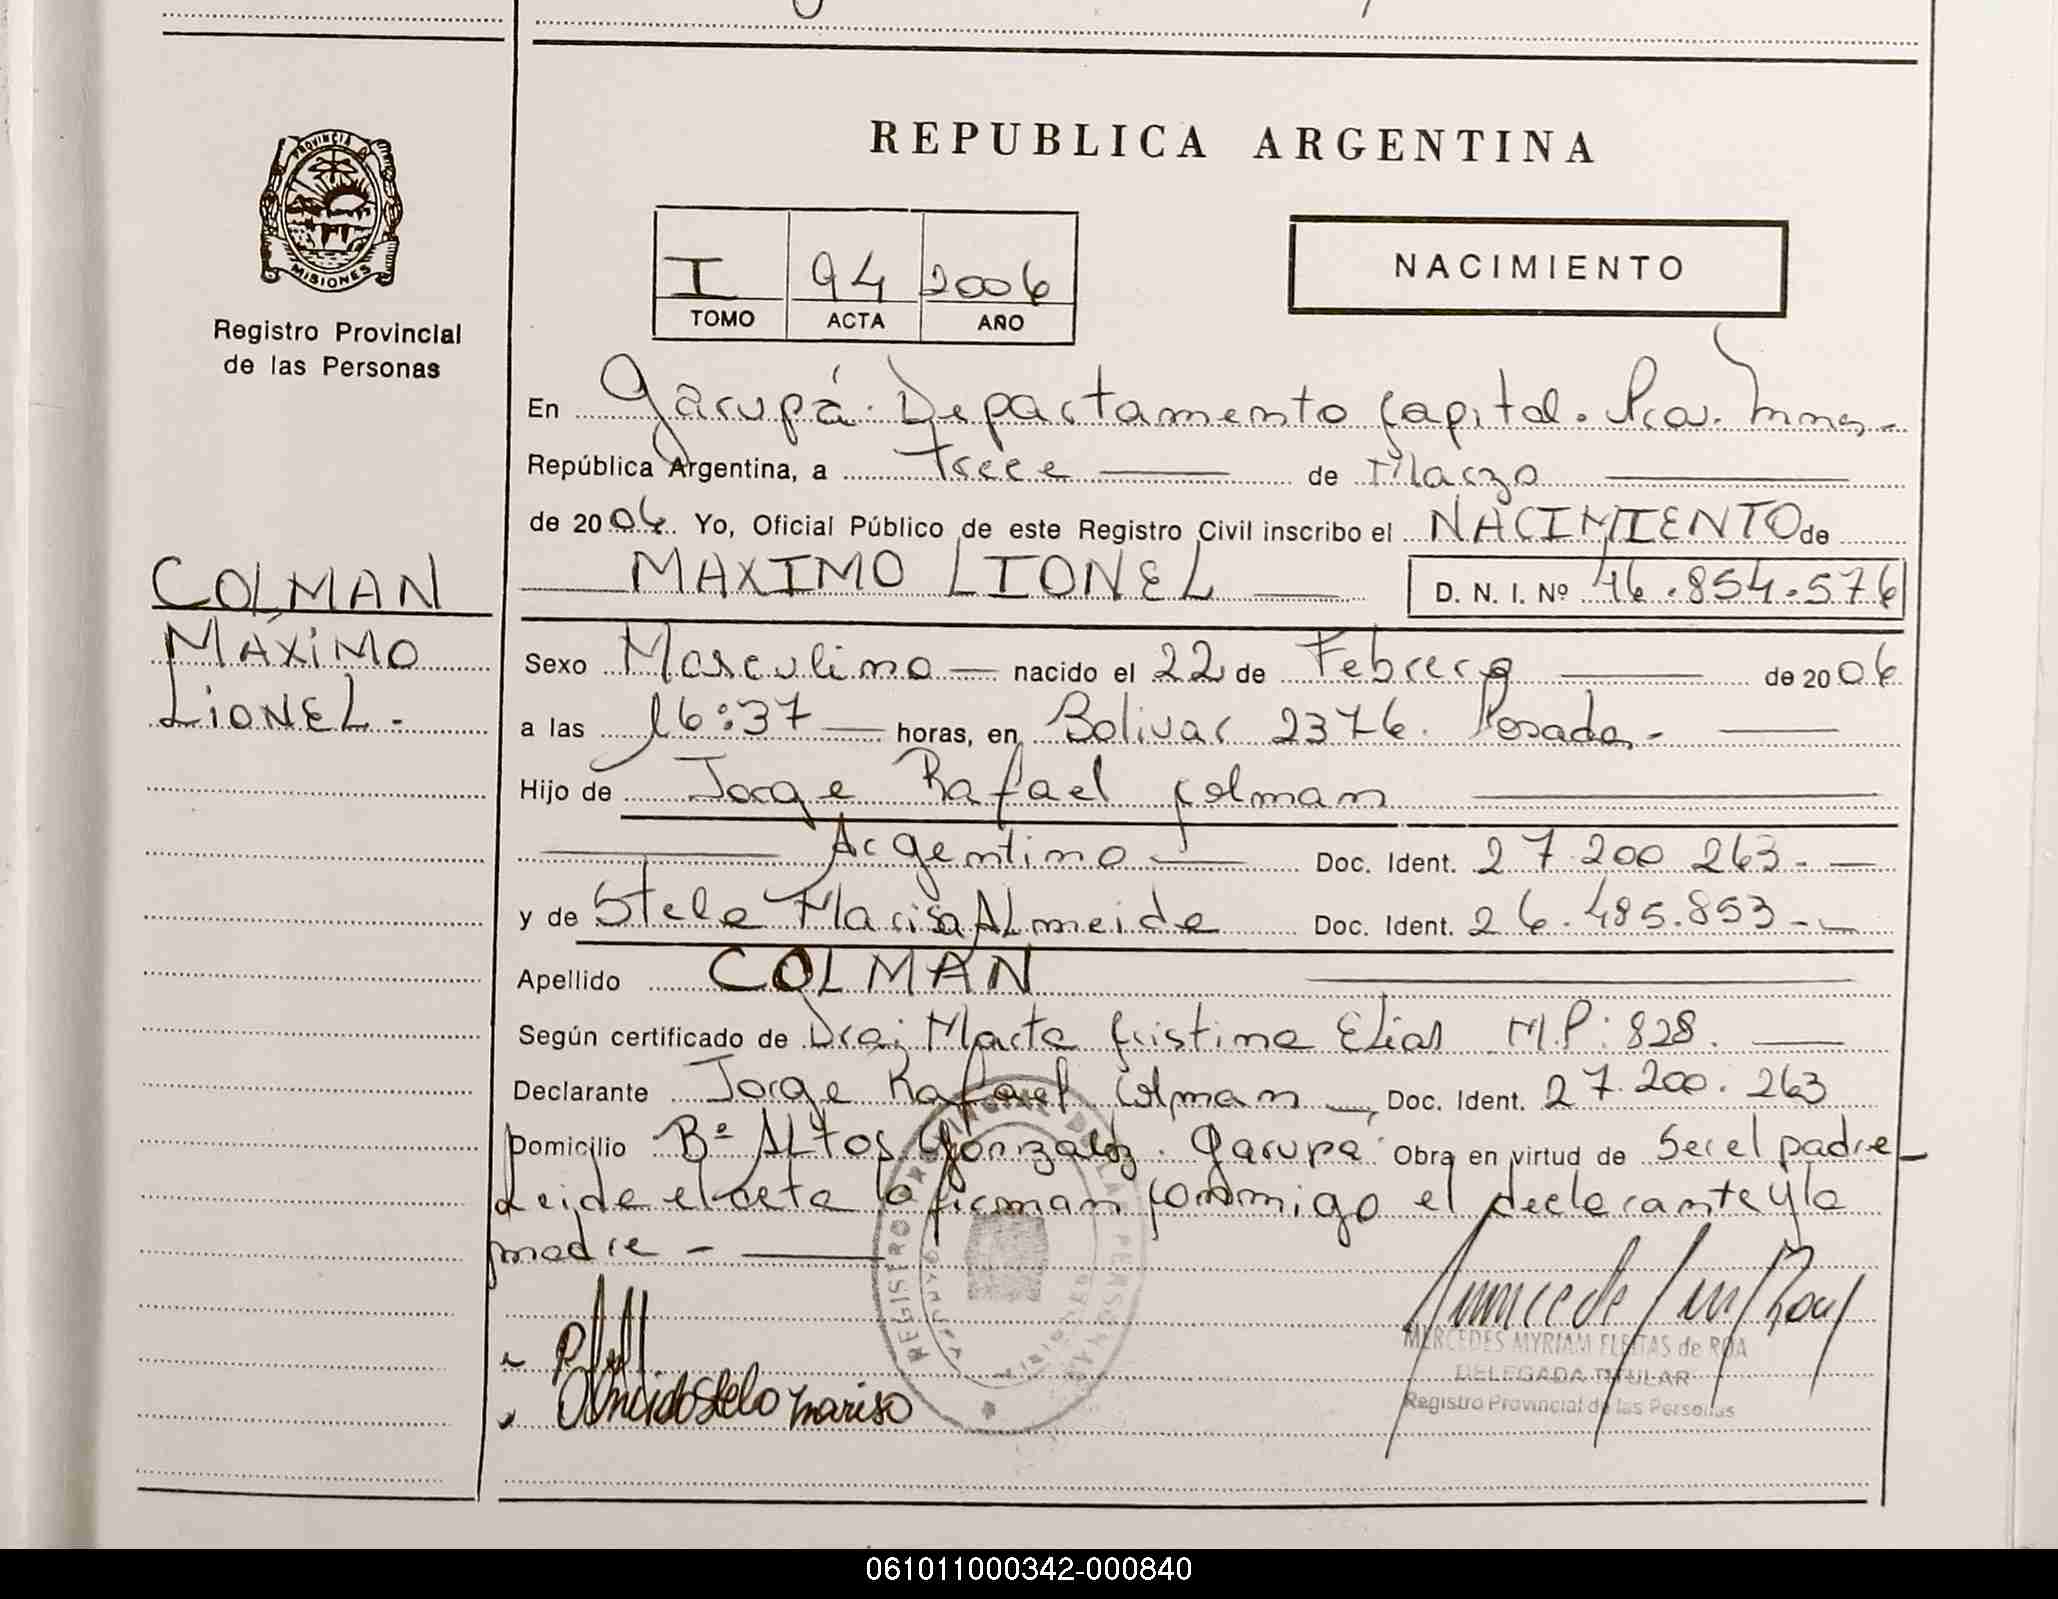 REPUBLICA ARGENTINA
PROVINCIA D
MISIONES
Registro Provincial
de las Personas
I 94 2006
TOMO ACTA AÑO
NACIMIENTO
En Garupá. Departamento Capital. Pcia. Mnes.-
República Argentina, a Trece de Marzo
de 2006. Yo, Oficial Público de este Registro Civil inscribo el NACIMIENTO de
MAXIMO LIONEL D. N. I. Nº 46.854.576
COLMAN
MÁXIMO
LIONEL.-
Sexo Masculino nacido el 22 de Febrero de 2006
a las 16:37 horas, en Bolivar 2376. Posadas.-
Hijo de Jorge Rafael Colman
Argentino Doc. Ident. 27.200.263.-
y de Stela Marisa Almeida Doc. Ident. 26.485.853.-
Apellido COLMAN
Según certificado de Dra; Marta Cristina Elias M.P: 828.
Declarante Jorge Rafael Colman Doc. Ident. 27.200.263
Domicilio Bº Altos Gonzalez. Garupa. Obra en virtud de Ser el padre
Leida el acta la firman conmigo el declarante y la
madre -
REGISTRO PROVINCIAL DE LAS PERSONAS
MISIONES
Almeida Stela Marisa
MERCEDES MYRIAM FLEITAS de ROA
DELEGADA TITULAR
Registro Provincial de las Personas
061011000342-000840